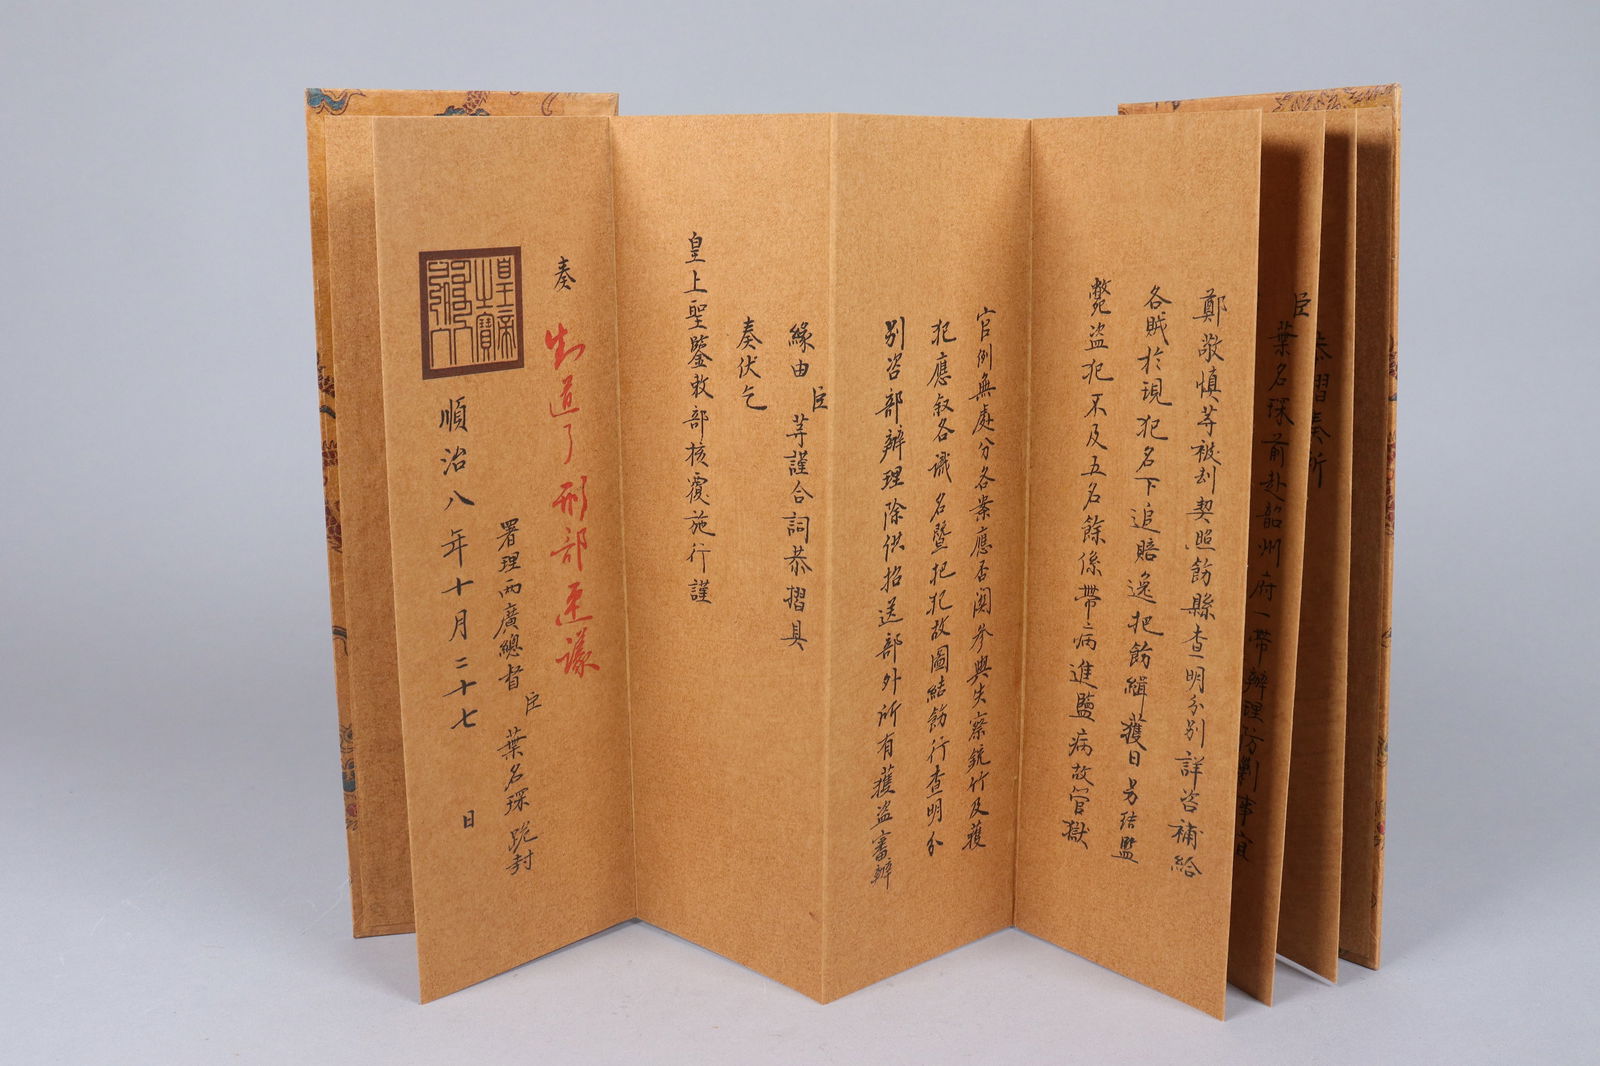 恭摺奏祈
臣葉名琛前赴韶州府一帶辦理防剿事宜
鄭敬慎等被刦契照飭縣查明分別詳咨補給
各賊於現犯名下追賠逸犯飭緝獲日另結監
斃盜犯不及五名餘係帶病進監病故管獄
官例無處分各案應否開參與失察銃竹及獲
犯應叙各識名暨把犯故圖結飭行查明分
別咨部辦理除供招送部外所有獲盜審辦
緣由臣等謹合詞恭摺具
奏伏乞
皇上聖鑒敕部核覆施行謹
奏
知道了刑部速議
署理兩廣總督臣葉名琛跪封
順治八年十月二十七日
皇帝之寶